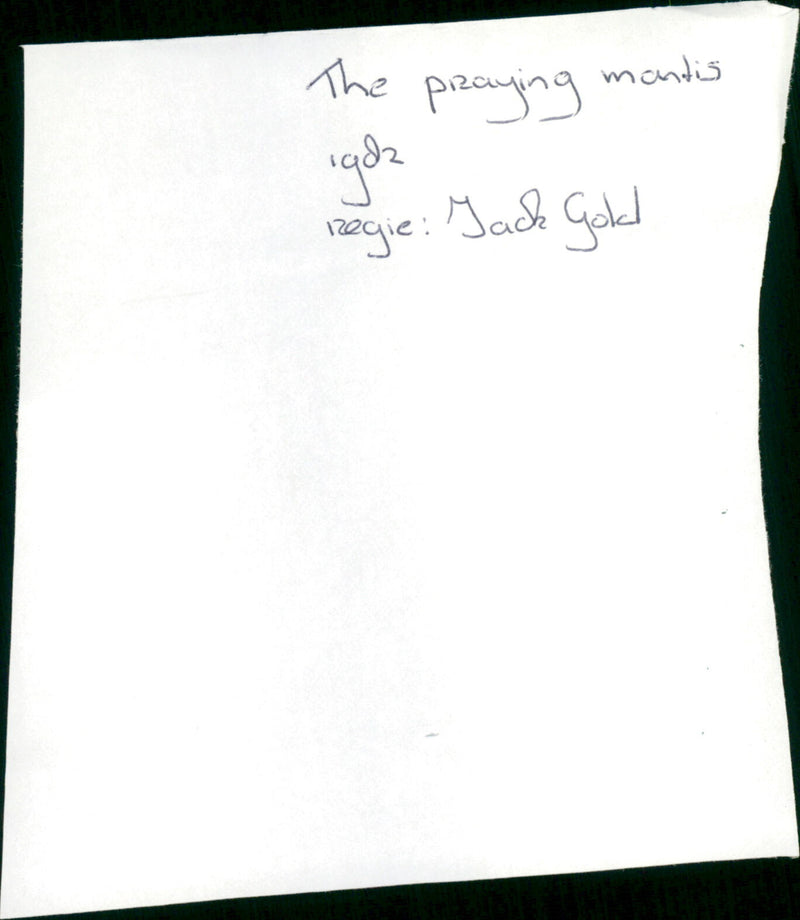 The praying mantis
1982
regie: Jack Gold